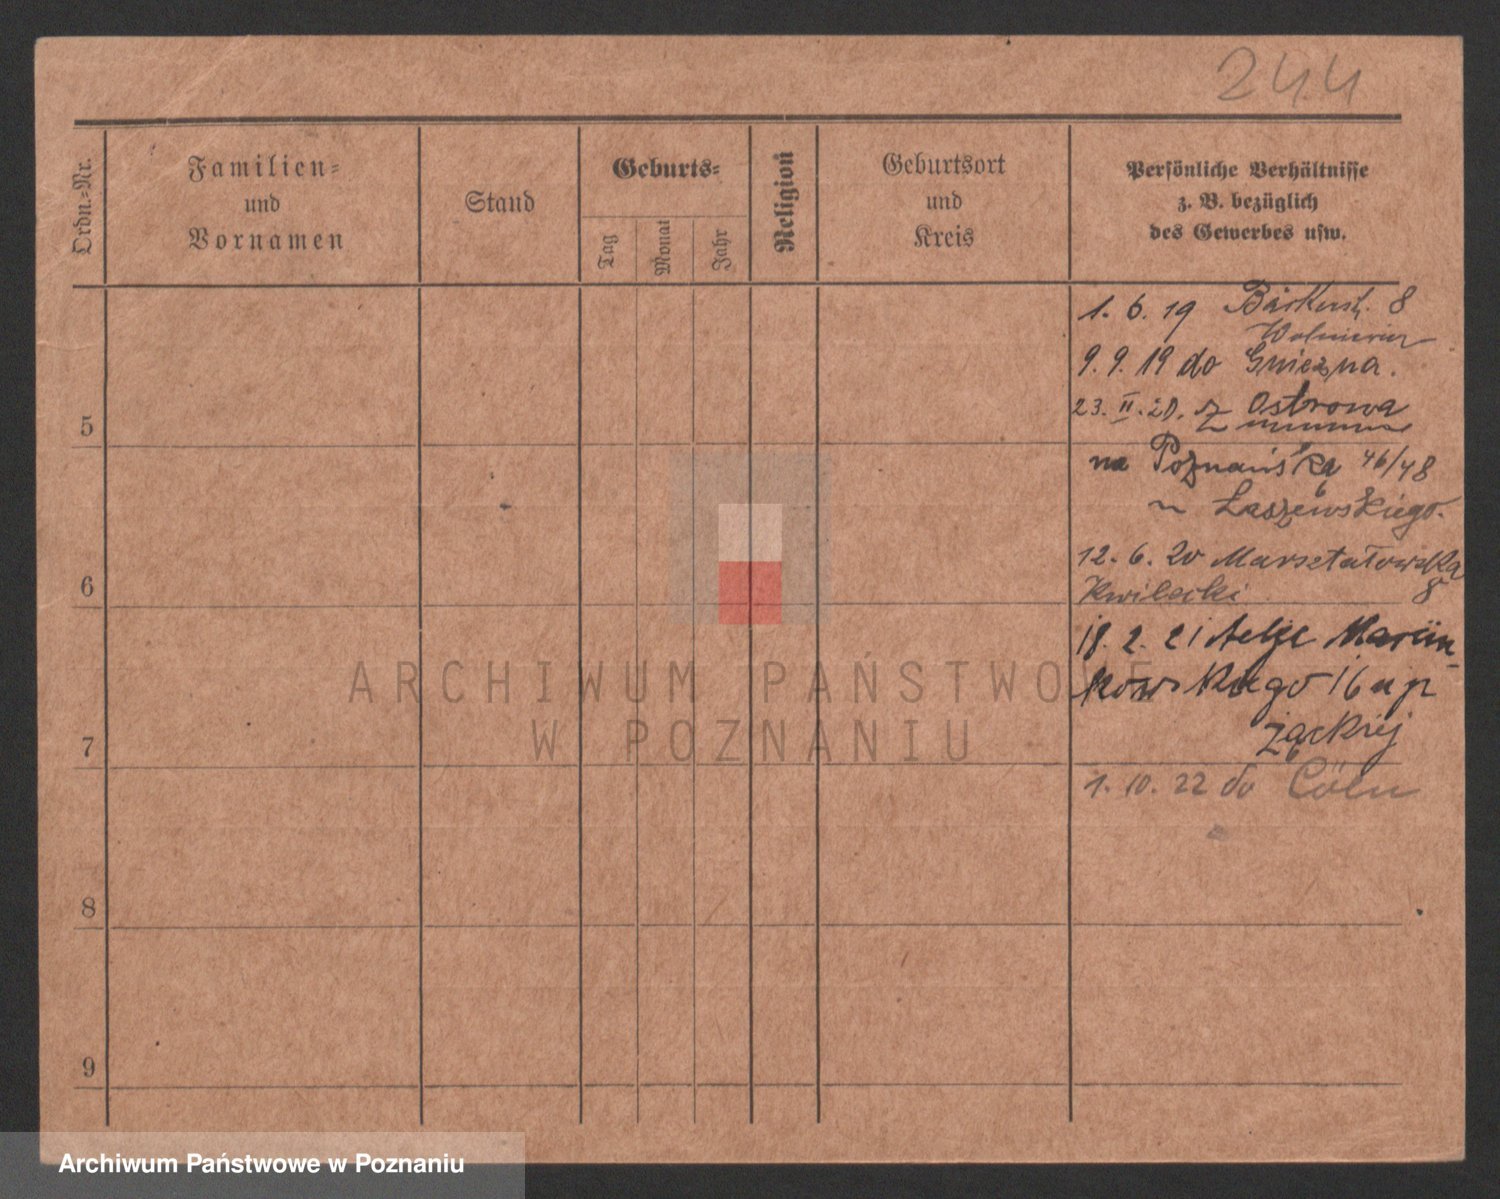 244
Ordn.-Nr.
Familien-
und
Vornamen
Stand
Geburts-
Tag
Monat
Jahr
Religion
Geburtsort
und
Kreis
Persönliche Verhältnisse
z. B. bezüglich
des Gewerbes usw.
1. 6. 19 8
9. 9. 19 do Gniezna.
23. II. 20. z Ostrowa
5
na Poznańską 46/48
Łaszewskiego.
12. 6. 20 Marształowska
6
Kwilecki 8
18. 2. 21 Aleje Marcin-
kowskiego 16 u p
7
Żąckiej
1. 10. 22 do Cöln
8
9
ARCHIWUM PAŃSTWOWE
W POZNANIU
Archiwum Państwowe w Poznaniu